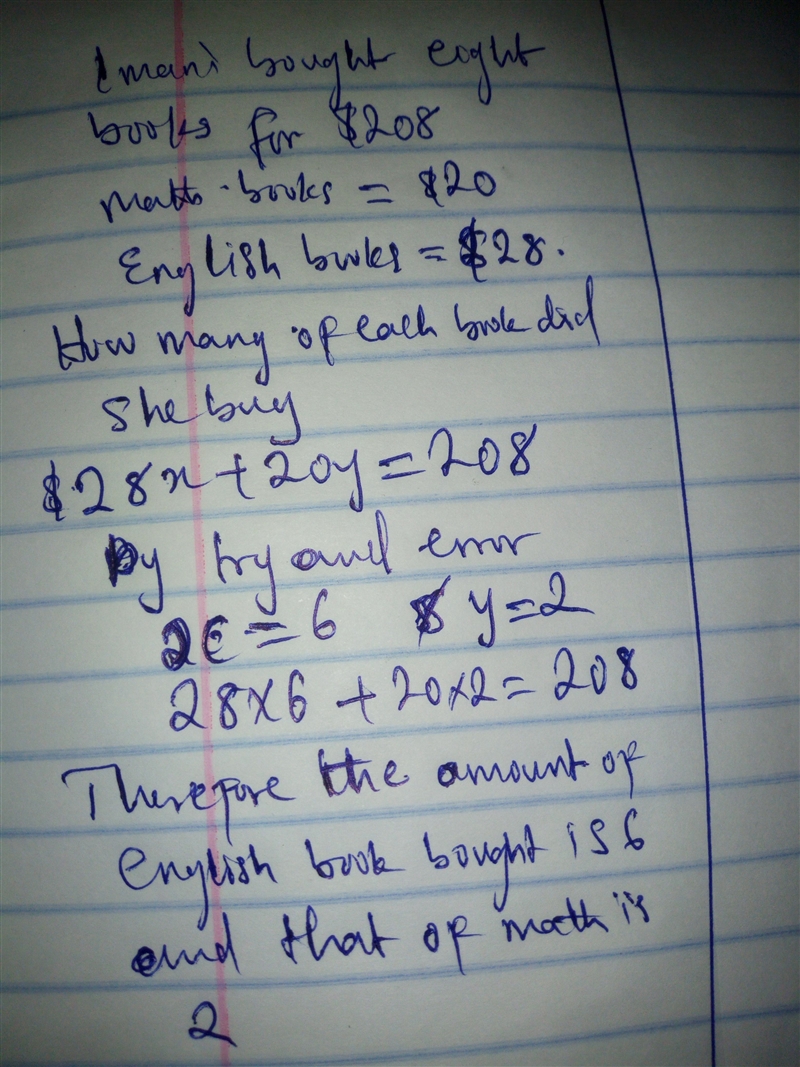 Imani bought eight
books for $208
Math-books = $20
English books = $28.
How many of each book did
She buy
$28x + 20y = 208
By try and error
x = 6 & y = 2
28x6 + 20x2 = 208
Therefore the amount of
English book bought is 6
and that of math is
2